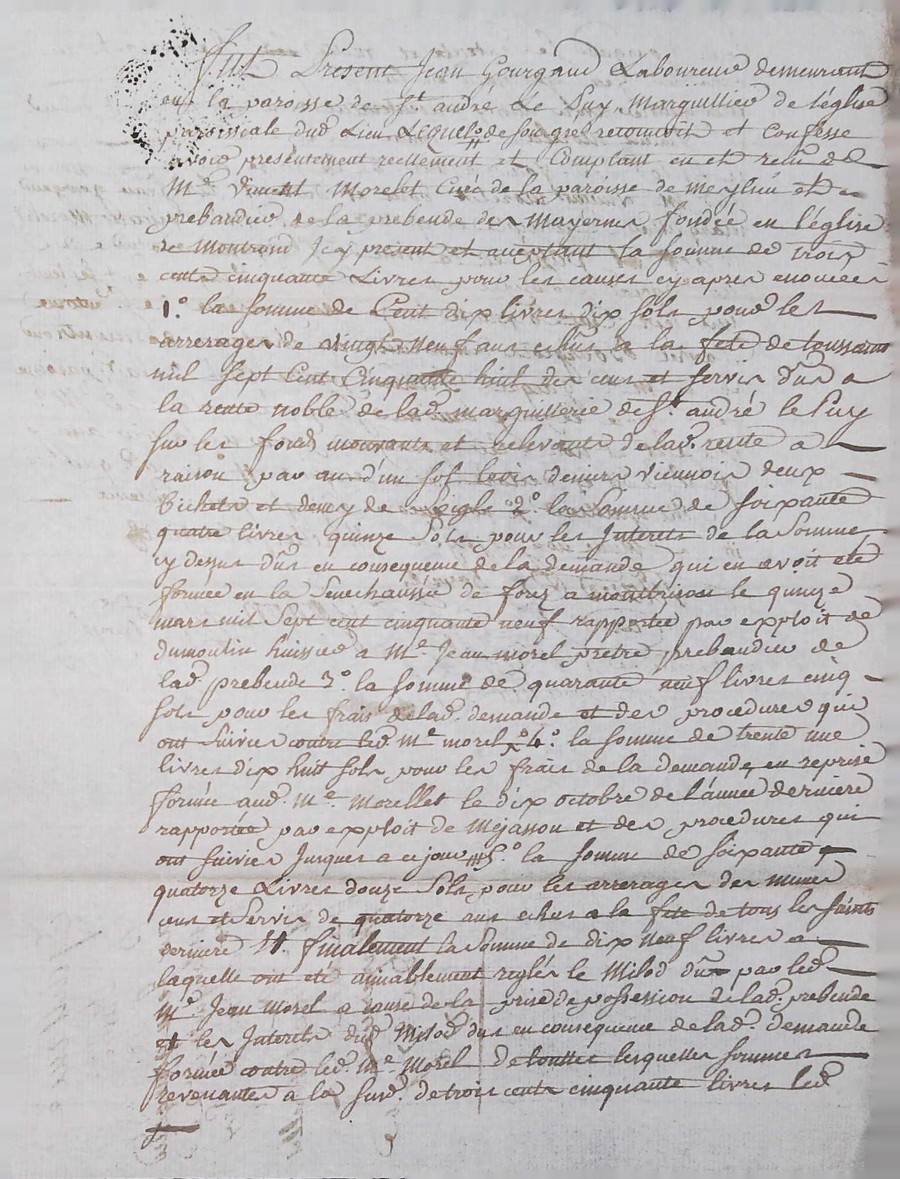 Fut Present Jean Gourgaud Laboureur demeurant
en la paroisse de St andré Le Puy Marguillier de l'église
paroissiale dud. Lieu Lequel de son gré reconnoit et confesse
avoir presentement reellement et Comptant eu et receu de
Me. Vincent Morelet Curé de la paroisse de Meylieu et
prebandier de la prebende des Mayernes fondée en l'église
de Montrond Icy present et acceptant la somme de trois
cents cinquante Livres pour les causes cy apres enoncées
1.° la somme de Cent dix livres dix sols pour les
arrerages de vingt neuf ans echus a la fete de toussaint
mil sept Cent Cinquante huit des cens et servis dus a
la rente noble de lad. marguillerie de St andré le Puy
sur les fonds mouvants et relevants de lad. rente a
raison par an d'un sol trois deniers viennois deux
bichets et demy de seigle 2.° la Somme de soixante
quatre livres quinze sols pour les Interets de la Somme
cy dessus dus en consequence de la demande qui en avoit eté
formée en la Senechaussée de forez a montbrison le quinze
mars mil sept cent cinquante neuf rapportée par exploit de
dumoulin huissier a Me. Jean morel pretre prebandier de
lad. prebende 3.° la somme de quarante neuf livres cinq
sols pour les frais de lad. demande et des procedures qui
ont suivies contre led. Me morel 4.° la somme de trente une
livres dix huit sols pour les frais de la demande, en reprise
formée aud. Me. Morellet le dix octobre de l'année derniere
rapportée par exploit de Mejasson et des procedures qui
ont suivies Jusques a ce jour 5.° la somme de soixante
quatorze Livres douze sols pour les arrerages des memes
cens et servis de quatorze ans echus a la fete de tous les saints
derniere Et finalement la somme de dix neuf livres a
laquelle ont eté amiablement reglés le Milod du par led.
Me. Jean Morel a cause de la prise de possession de lad. prebende
et les Interets dud. Milod dus en consequence de lad. demande
formée contre led. Me. Morel De touttes lesquelles sommes
revenantes a la susd. de trois cents cinquante livres led.